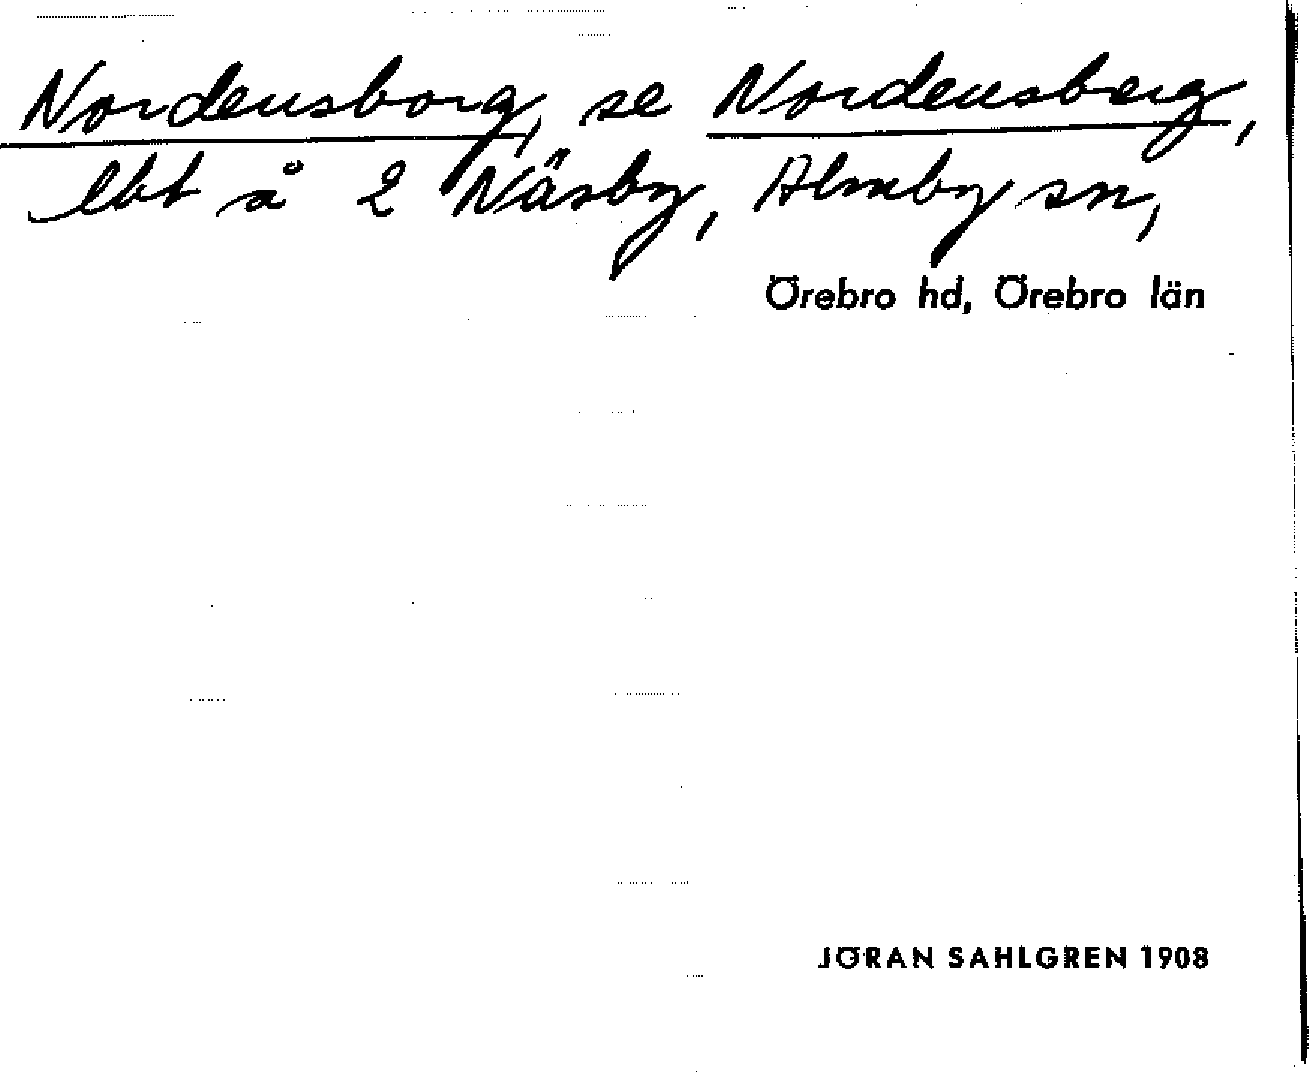 Nordensborg, se Nordensberg,
lbt å 2 Näsby, Almby sn,
Örebro hd, Örebro län
JÖRAN SAHLGREN 1908